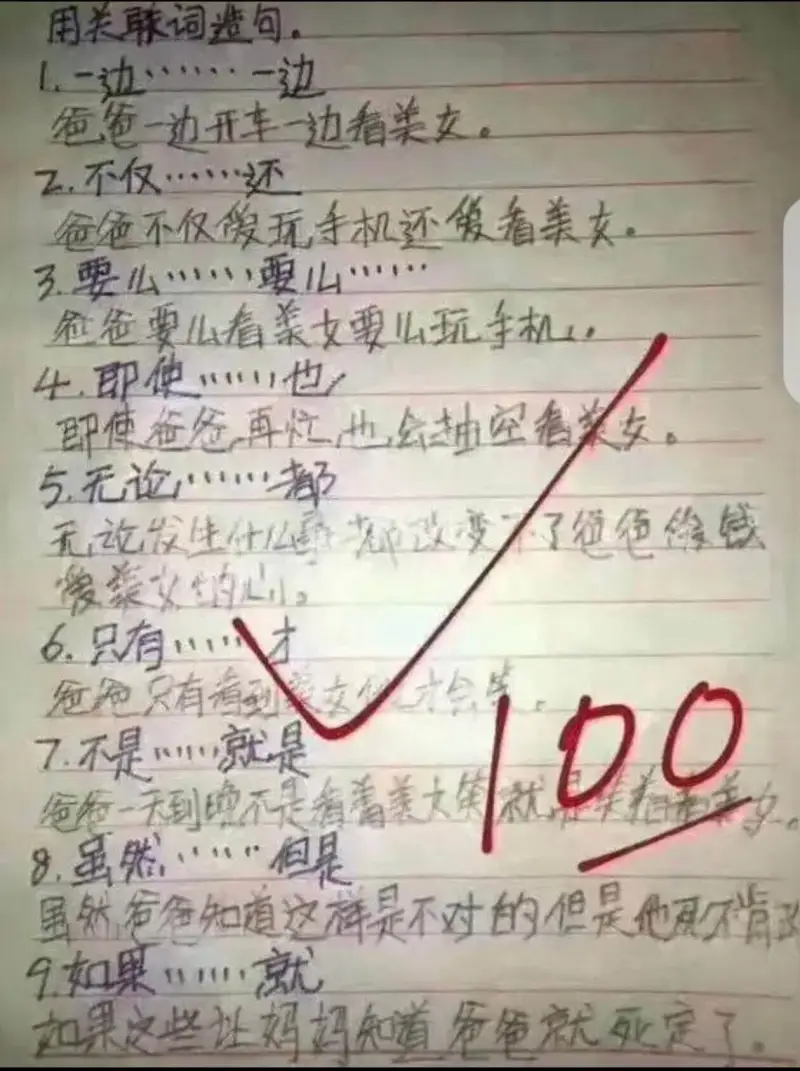 用关联词造句。
1.一边……一边
爸爸一边开车一边看美女。
2.不仅……还
爸爸不仅爱玩手机还爱看美女。
3.要么……要么……
爸爸要么看美女要么玩手机。
4.即使……也
即使爸爸再忙,也会抽空看美女。
5.无论……都
无论发生什么事都改变不了爸爸爱美女的心。
6.只有……才
爸爸只有看到美女他才会笑。
7.不是……就是
爸爸一天到晚不是看着美女笑就是笑着看美女。
8.虽然……但是
虽然爸爸知道这样是不对的但是他死不肯改
9.如果……就
如果这些让妈妈知道爸爸就死定了。
100